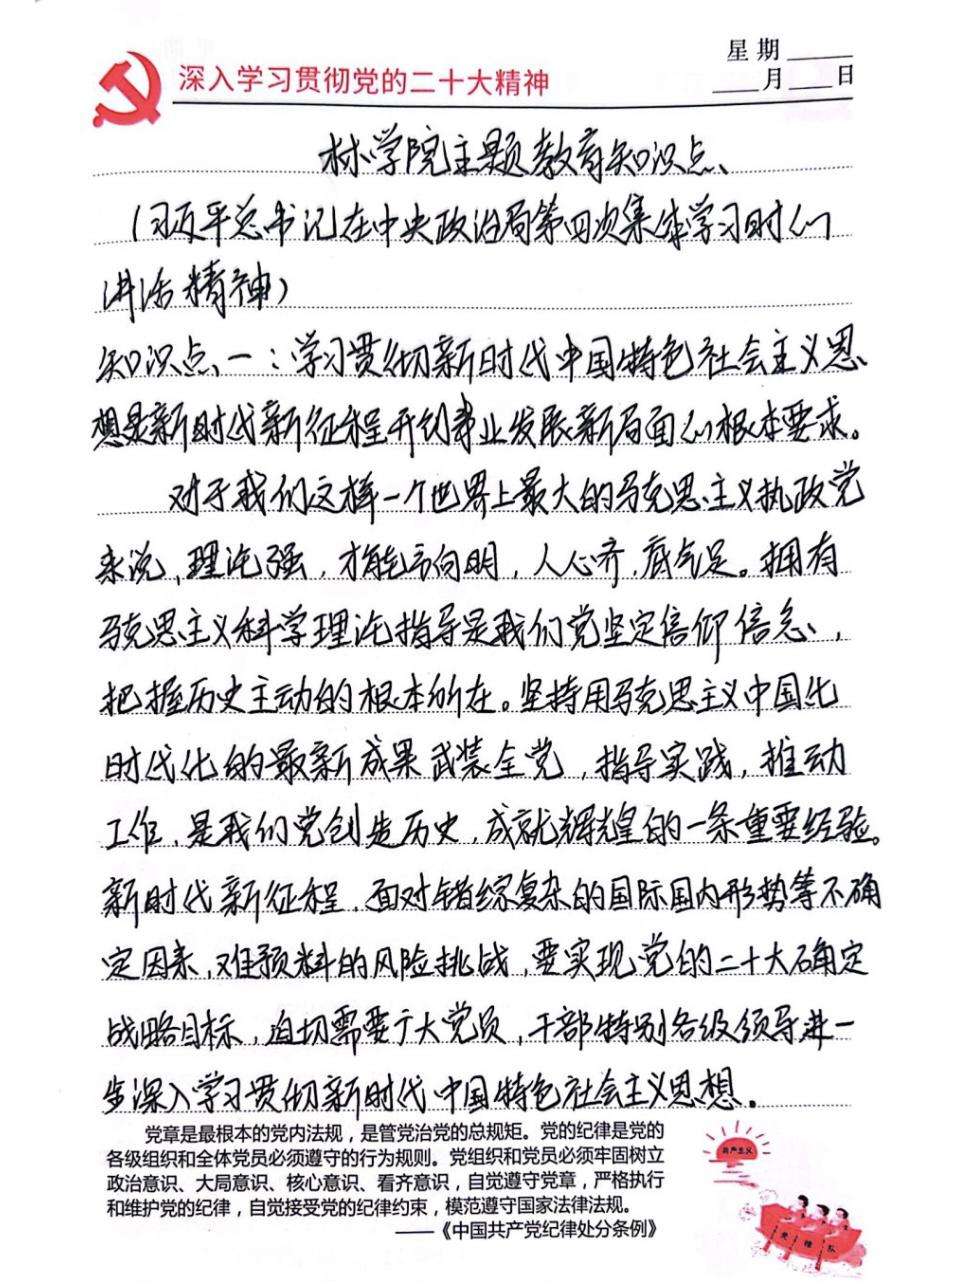 星期
月 日
深入学习贯彻党的二十大精神
林学院主题教育知识点、
(习近平总书记在中央政治局第四次集体学习时的
讲话精神)
知识点、一:学习贯彻新时代中国特色社会主义思
想是新时代新征程开创事业发展新局面的根本要求。
对于我们这样一个世界上最大的马克思主义执政党
来说,理论强,才能方向明,人心齐,底气足。拥有
马克思主义科学理论指导是我们党坚定信仰信念、,
把握历史主动的根本所在。坚持用马克思主义中国化
时代化的最新成果武装全党,指导实践,推动
工作,是我们党创造历史,成就辉煌的一条重要经验。
新时代新征程,面对错综复杂的国际国内形势等不确
定因素,难预料的风险挑战,要实现党的二十大确定
战略目标,迫切需要广大党员,干部特别各级领导进一
步深入学习贯彻新时代中国特色社会主义思想.
党章是最根本的党内法规,是管党治党的总规矩。党的纪律是党的
各级组织和全体党员必须遵守的行为规则。党组织和党员必须牢固树立
政治意识、大局意识、核心意识、看齐意识,自觉遵守党章,严格执行
和维护党的纪律,自觉接受党的纪律约束,模范遵守国家法律法规。
——《中国共产党纪律处分条例》
共产主义
先锋队